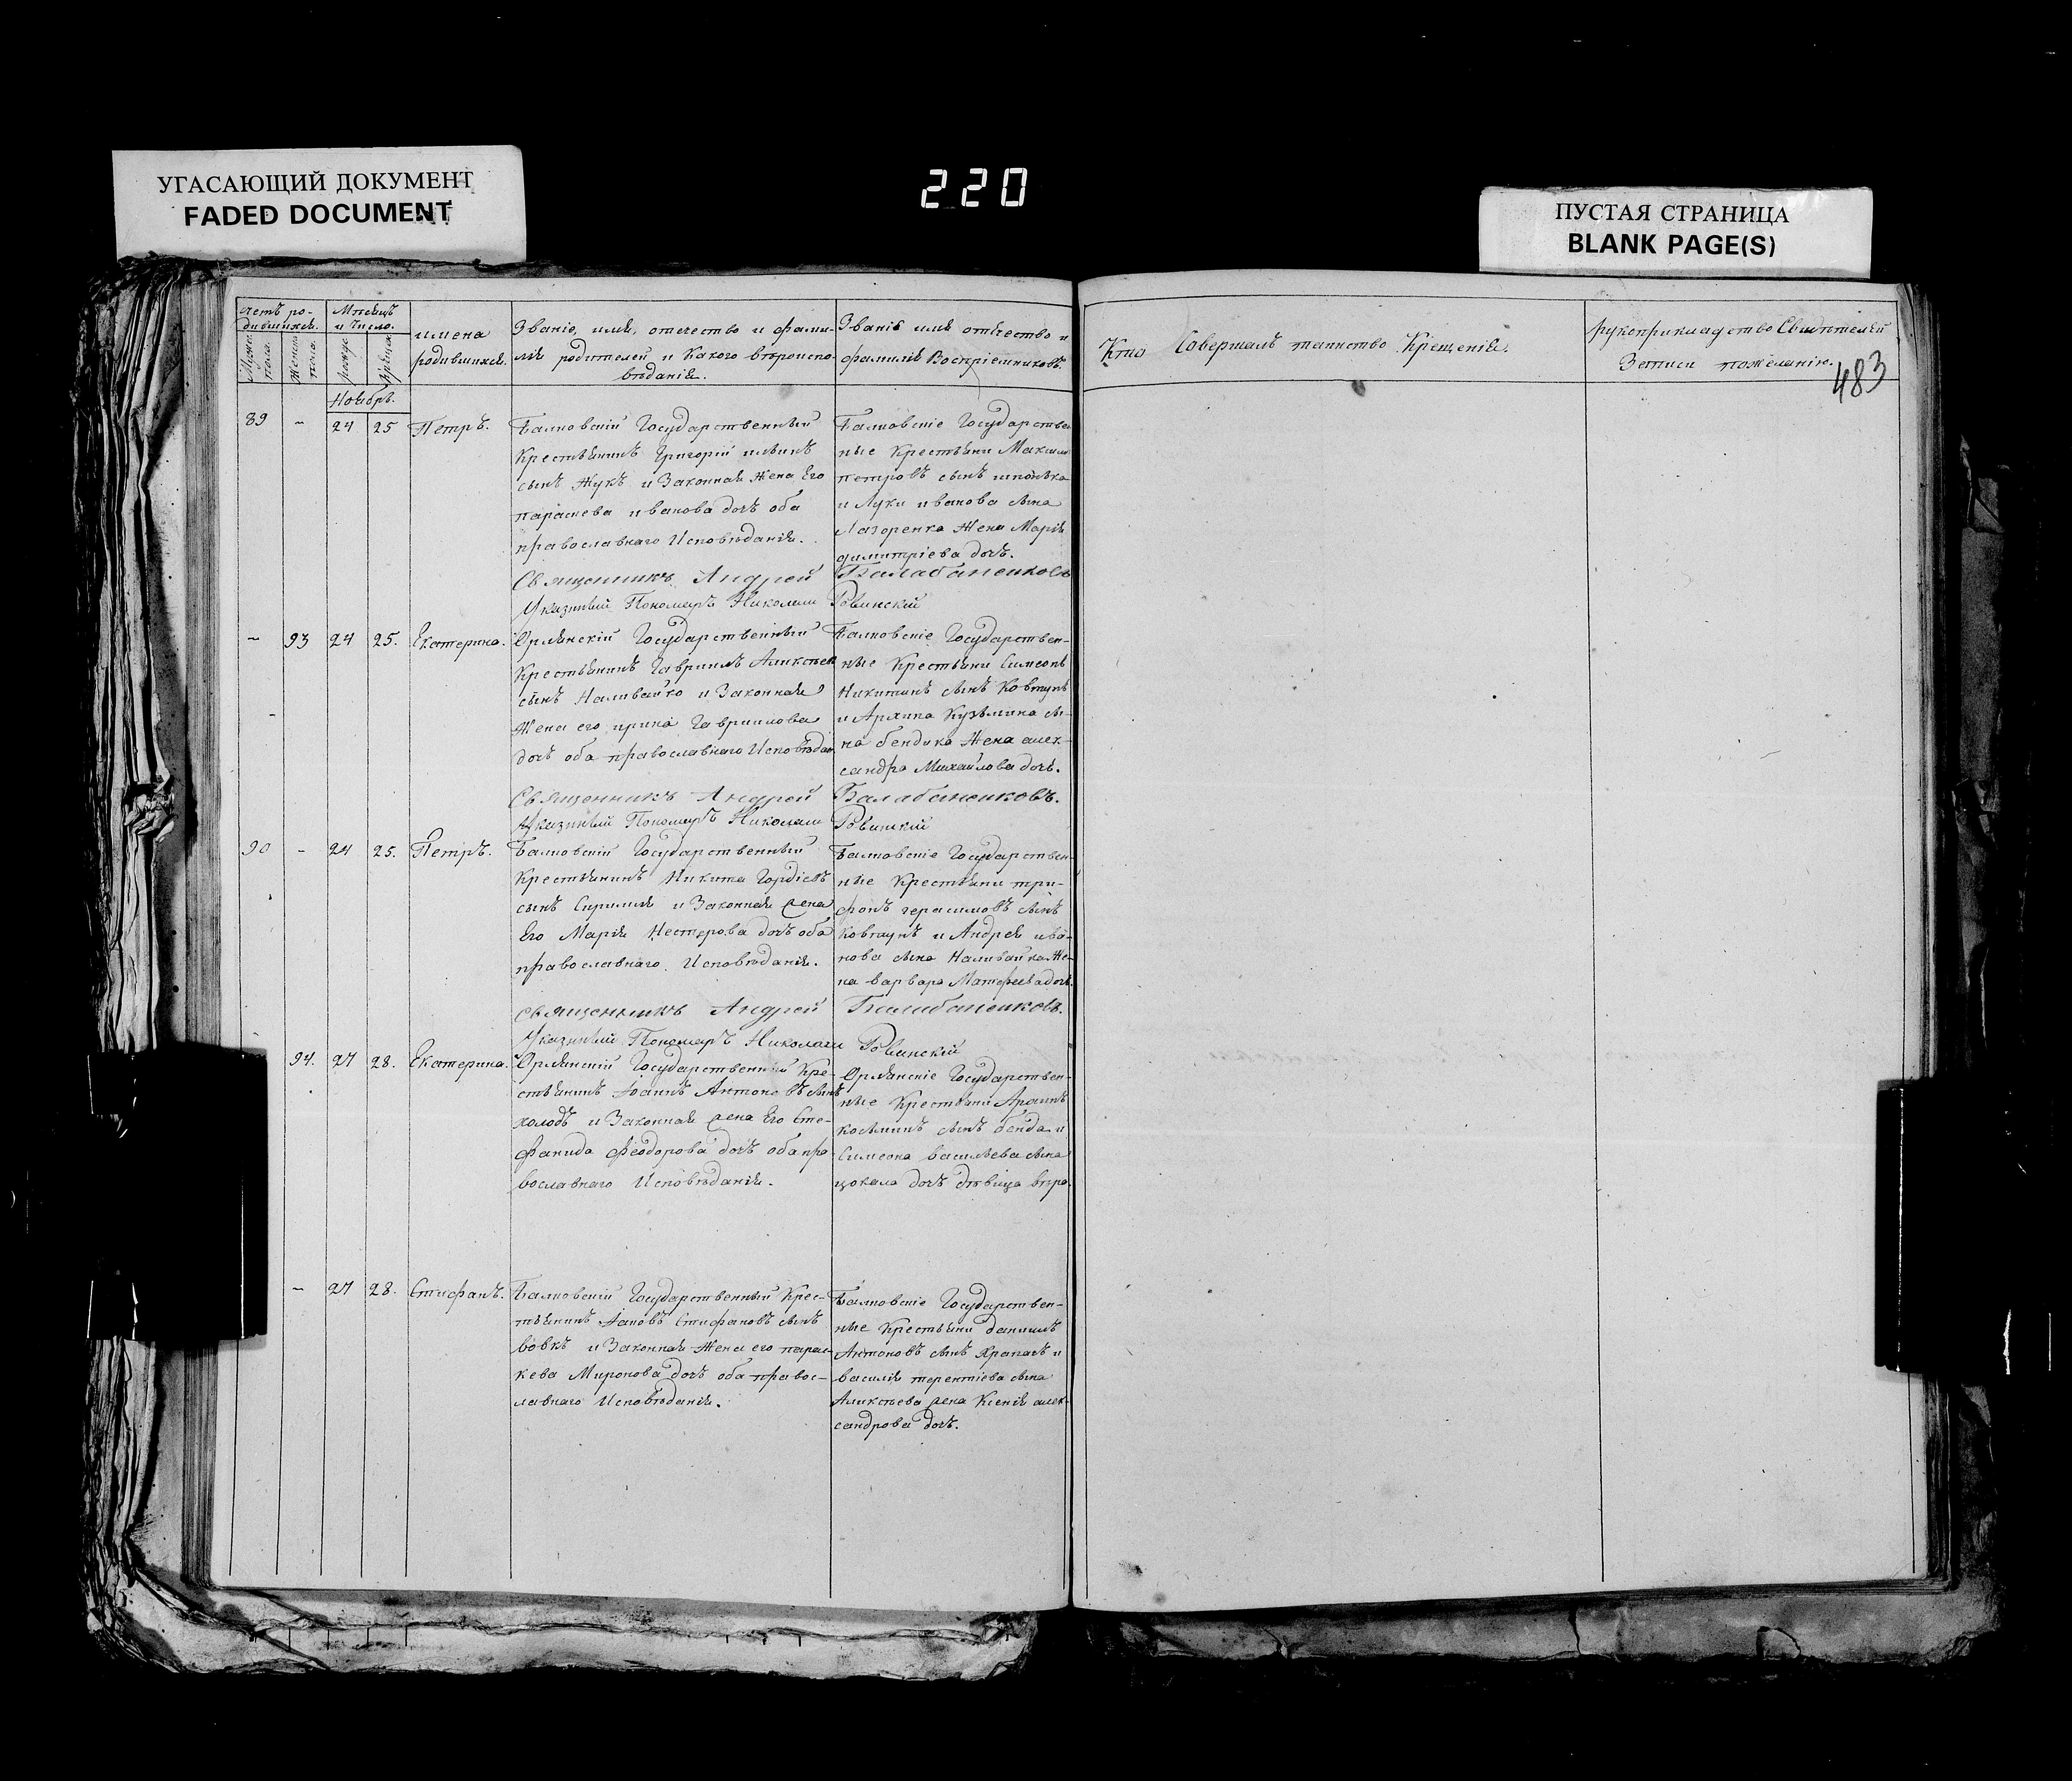 УГАСАЮЩИЙ ДОКУМЕНТ
FADED DOCUMENT
220
ПУСТАЯ СТРАНИЦА
BLANK PAGE(S)
щетъ ро-
дившихся.
Мужес. пола.
Женска пола.
Мѣсяцъ
и число.
рожде
крещен
имена
родившихся.
Званіе, имя, отечество и фами-
лія родителей, и какого вѣроиспо-
вѣданія.
Званіе имя отечество и
фамилія Воспріемниковъ.
Кто Совершалъ таинство Крещенія.
рукоприкладство Свидѣтелей
Записи пожеланію.
483
Ноябрь.
89 - 24 25 Петръ.
Балковскій Государственный
Крестьянинъ Григорій
сынъ Жукъ и Законная Жена Его
параскева иванова дочь оба
православнаго Исповѣданія.
Балковскіе Государствен
ные Крестьяни Максим
петровъ сынъ
и Луки иванова сына
Лазоренка Жена Марія
димитріева дочь.
Священникъ Андрей Балабаненковъ
Указный Пономарь Николай Ровинскій
- 93 24 25. Екатерина.
Орлянскій Государственный
Крестьянинъ Гавріилъ Алексѣев
сынъ Наливайко и Законная
Жена его ирина Гавріилова
дочь оба православнаго Исповѣдан
Балковскіе Государствен-
ные Крестьяни Симеонъ
Никитинъ сынъ Ковтунъ
и Архипа Кузьмина сы-
на бендика Жена алек-
сандра Михайлова дочь.
Священникъ Андрей Балабаненковъ.
Указный Пономарь Николай Ровинскій
90 - 24 25. Петръ.
Балковскій Государственный
Крестьянинъ Никита Гордіевъ
сынъ и Законная жена
Его Марія Нестерова дочь оба
православнаго Исповѣданія.
Балковскіе Государствен-
ные Крестьяни три-
фонъ герасимовъ сынъ
Ковтунъ и Андрея ива-
нова сына Наливайка Же-
на варвара Матфеева дочь.
Священникъ Андрей Балабаненковъ.
Указный Пономарь Николай Ровинскій
94. 27 28. Екатерина.
Орлянскій Государственный Кре-
стьянинъ Іоаннъ Антоновъ сынъ
холодъ и Законная жена Его Сте-
фанида Феодорова дочь оба пра-
вославнаго Исповѣданія.
Орлянскіе Государствен-
ные Крестьяни Архипъ
косьминъ сынъ бенда и
Симеона васильева сына
цокала дочь дѣвица вѣра.
- 27 28. Стифанъ.
Балковскій Государственный Крес-
тьянинъ Іаковъ Стифановъ сынъ
вовкъ и Законная Жена его парас-
кева Миронова дочь оба правос-
лавнаго Исповѣданія.
Балковскіе Государствен-
ные Крестьяни даниилъ
Антоновъ сынъ Храпачъ и
василія терентіева сына
Алексѣева жена Ксенія алек-
сандрова дочь.